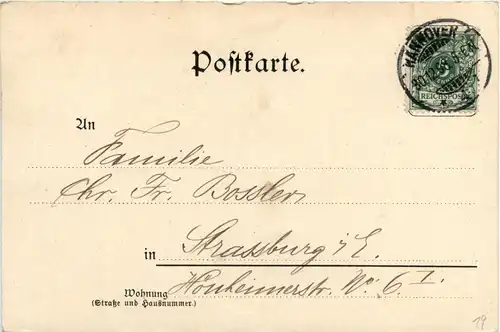 HANNOVER
REICHSPOST
Postkarte.
An
Familie
Chr. Fr. Bossler,
in Strassburg i/E.
Wohnung Hönheimerstr. No. 6 I.
(Straße und Hausnummer.)
19